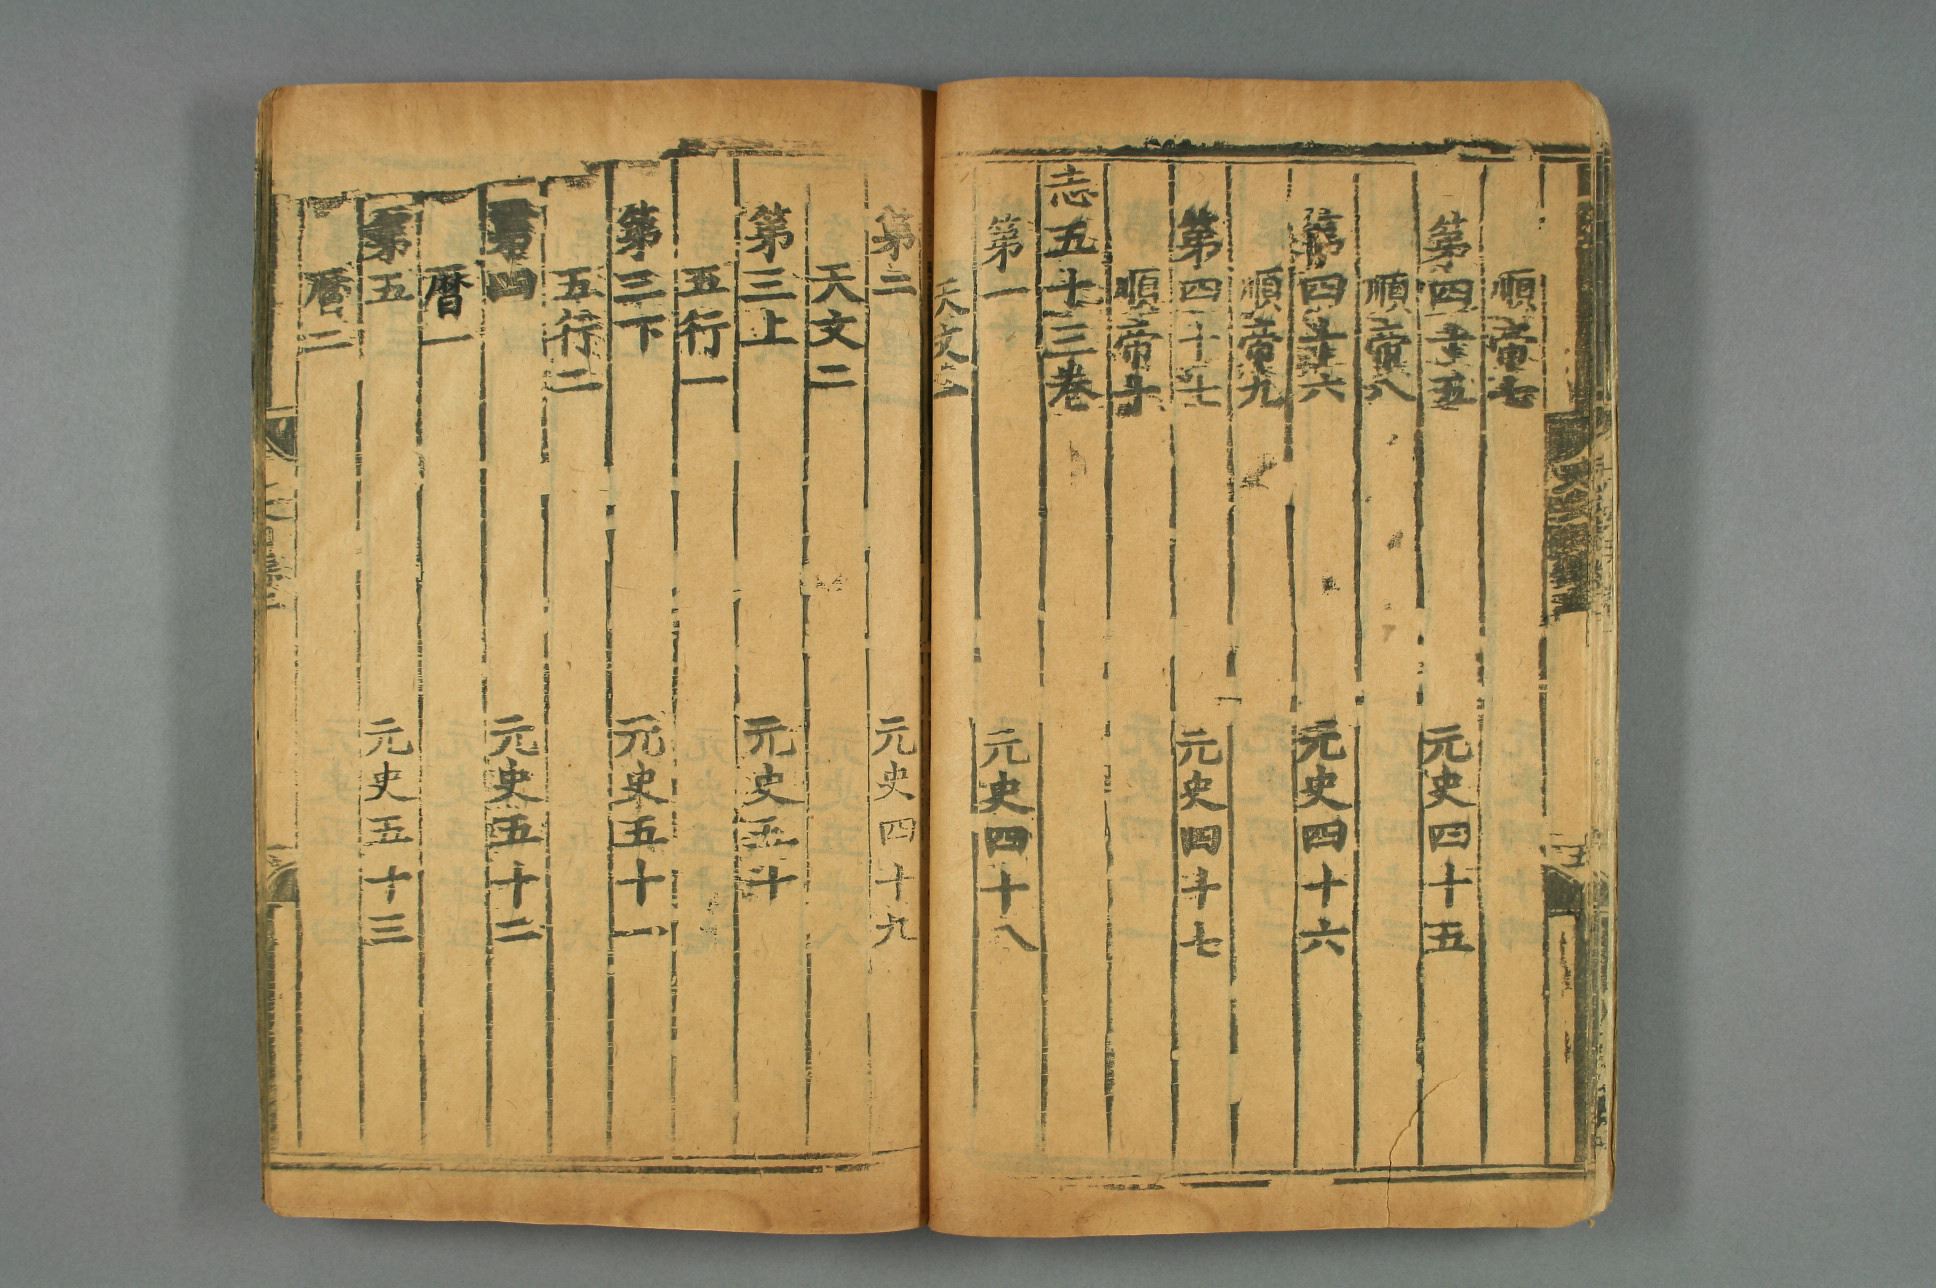 順帝七
第四十五 元史四十五
順帝八
第四十六 元史四十六
順帝九
第四十七 元史四十七
順帝十
志五十三卷
第一 元史四十八
天文
第二 元史四十九
天文二
第三上 元史五十
五行一
第三下 元史五十一
五行二
第四 元史五十二
曆一
第五 元史五十三
曆二